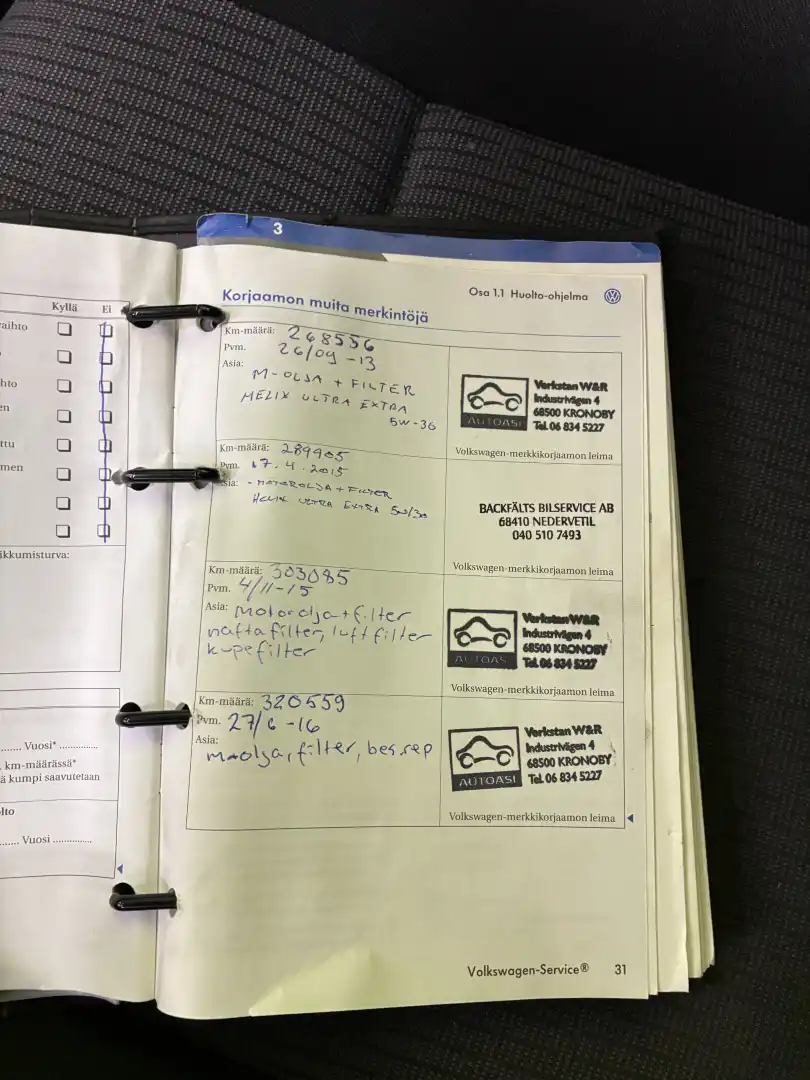 Kyllä Ei
vaihto
hto
en
ttu
men
ikkumisturva:
Vuosi*
, km-määrässä*
ä kumpi saavutetaan
lto
Vuosi
3
Osa 1.1 Huolto-ohjelma
Korjaamon muita merkintöjä
Km-määrä: 268556
Pvm. 26/09 -13
Asia:
M-OLJA + FILTER
HELIX ULTRA EXTRA
5W-30
AUTOASI
Verkstan W&R
Industrivägen 4
68500 KRONOBY
Tel. 06 834 5227
Volkswagen-merkkikorjaamon leima
Km-määrä: 289905
Pvm. 17.4.2015
Asia: - MOTOROLJA + FILTER
HELIX ULTRA EXTRA 5W/30
BACKFÄLTS BILSERVICE AB
68410 NEDERVETIL
040 510 7493
Volkswagen-merkkikorjaamon leima
Km-määrä: 303085
Pvm. 4/11-15
Asia: Motorolja+filter
naftafilter, luftfilter
kupefilter
AUTOAS
Verkstan W&R
Industrivägen 4
68500 KRONOBY
Tel. 06 834 5227
Volkswagen-merkkikorjaamon leima
Km-määrä: 320559
Pvm. 27/6 -16
Asia:
m-olja, filter, bes.rep
AUTOASI
Verkstan W&R
Industrivägen 4
68500 KRONOBY
Tel. 06 834 5227
Volkswagen-merkkikorjaamon leima
Volkswagen-Service® 31